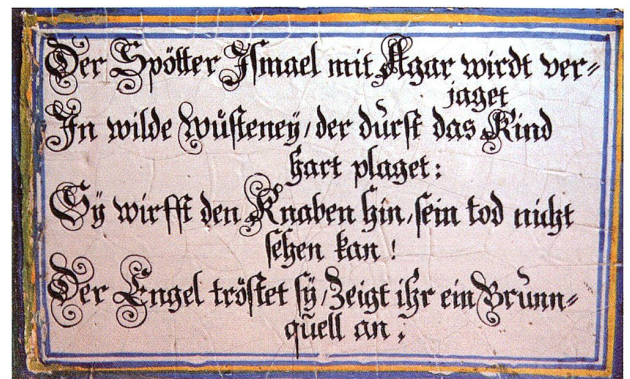 Der Spötter Ismael mit Agar wirdt ver=
jaget
In wilde Wüsteneÿ/der durst das Kind
hart plaget:
Sÿ wirfft den Knaben hin/sein tod nicht
sehen kan!
Der Engel tröstet sÿ/Zeigt ihr ein Brunn=
quell an;